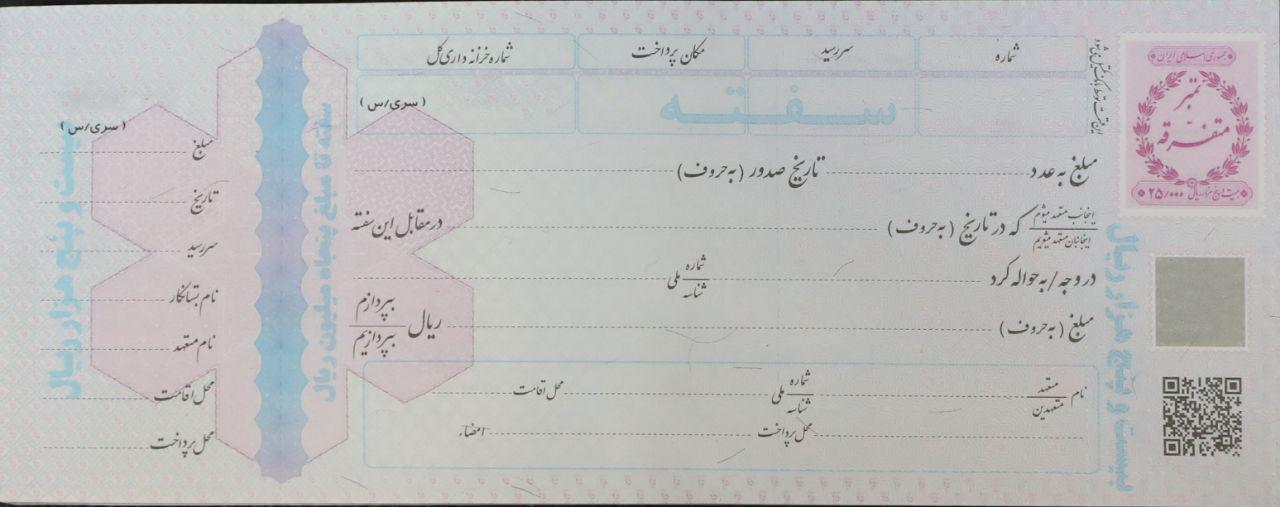 شماره
سررسید
مکان پرداخت
شماره خزانه داری کل
این قسمت توسط بانک تکمیل می شود
سفته
(سری/س)
مبلغ به عدد
تاریخ صدور (به حروف)
اینجانب متعهد میشوم
اینجانبان متعهد میشویم
که در تاریخ (به حروف)
در مقابل این سفته
در وجه / به حواله کرد
شماره
شناسه
ملی
مبلغ (به حروف)
ریال
بپردازم
بپردازیم
نام
متعهد
متعهدین
شماره
شناسه
ملی
محل اقامت
محل پرداخت
امضاء
جمهوری اسلامی ایران
تمبر
متفرقه
بیست و پنج هزار ریال
۲۵/۰۰۰
بیست و پنج هزار ریال
سفته تا مبلغ پنجاه میلیون ریال
(سری/س)
مبلغ
تاریخ
سررسید
نام بستانکار
نام متعهد
محل اقامت
محل پرداخت
بیست و پنج هزار ریال